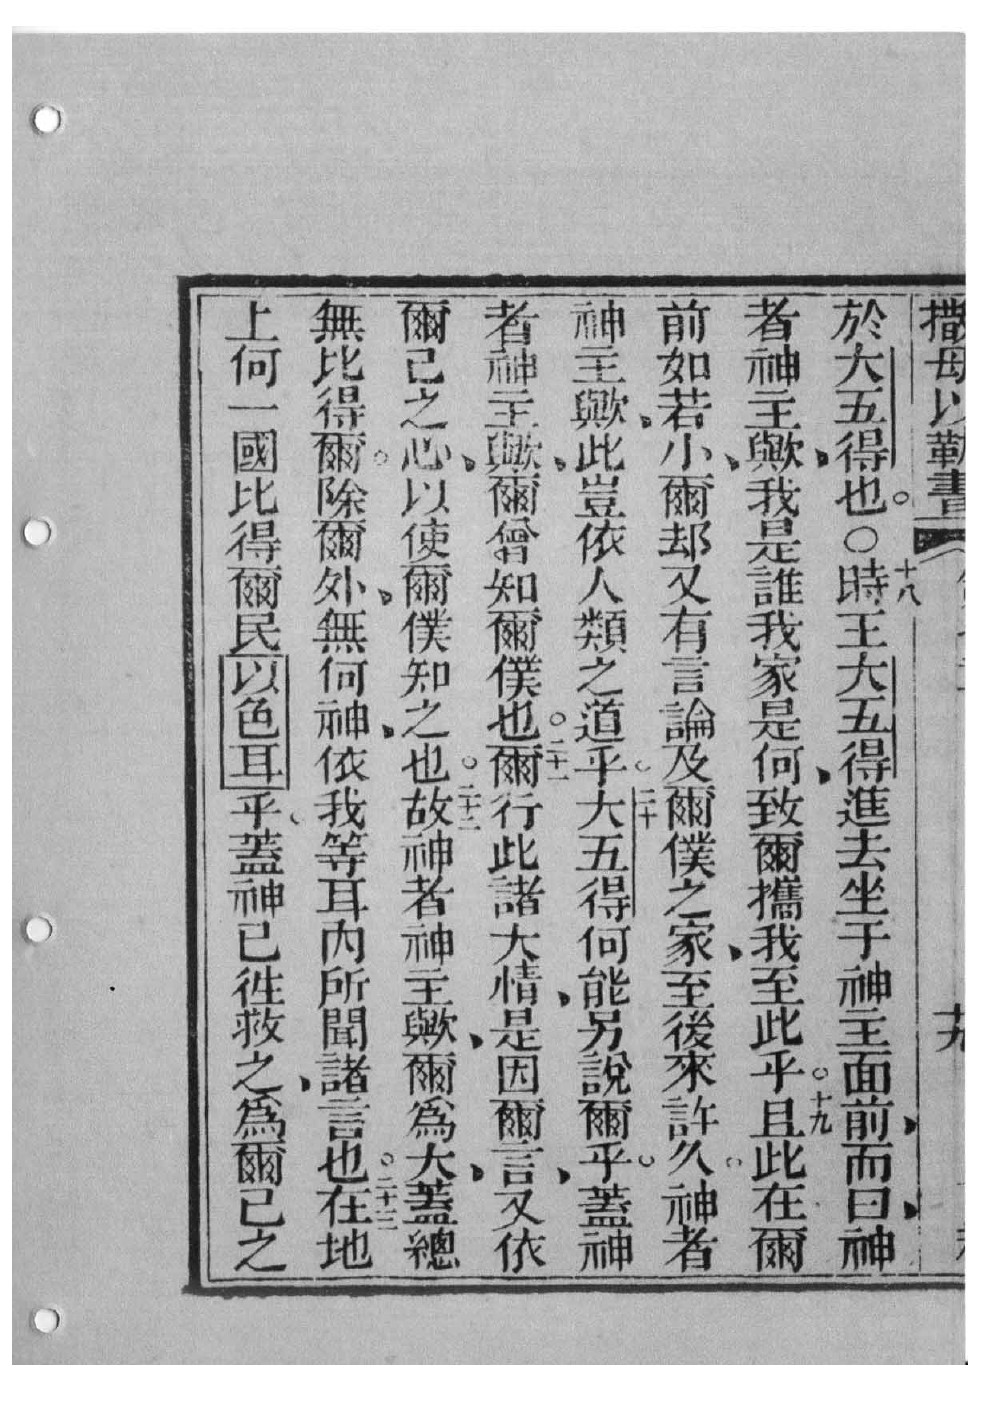 撒母以勒書
於大五得也。○十八時王大五得進去坐于神主面前、而曰、神
者神主歟、我是誰我家是何、致爾攜我至此乎。十九且此在爾
前如若小、爾却又有言論及爾僕之家、至後來許久。神者
神主歟、此豈依人類之道乎。二十大五得何能另說爾乎。蓋神
者神主歟、爾曾知爾僕也。二十一爾行此諸大情、是因爾言、又依
爾己之心、以使爾僕知之也。二十二故神者神主歟、爾為大、蓋總
無比得爾。除爾外、無何神、依我等耳內所聞諸言也。二十三在地
上何一國比得爾民以色耳乎。蓋神已徃救之、為爾己之